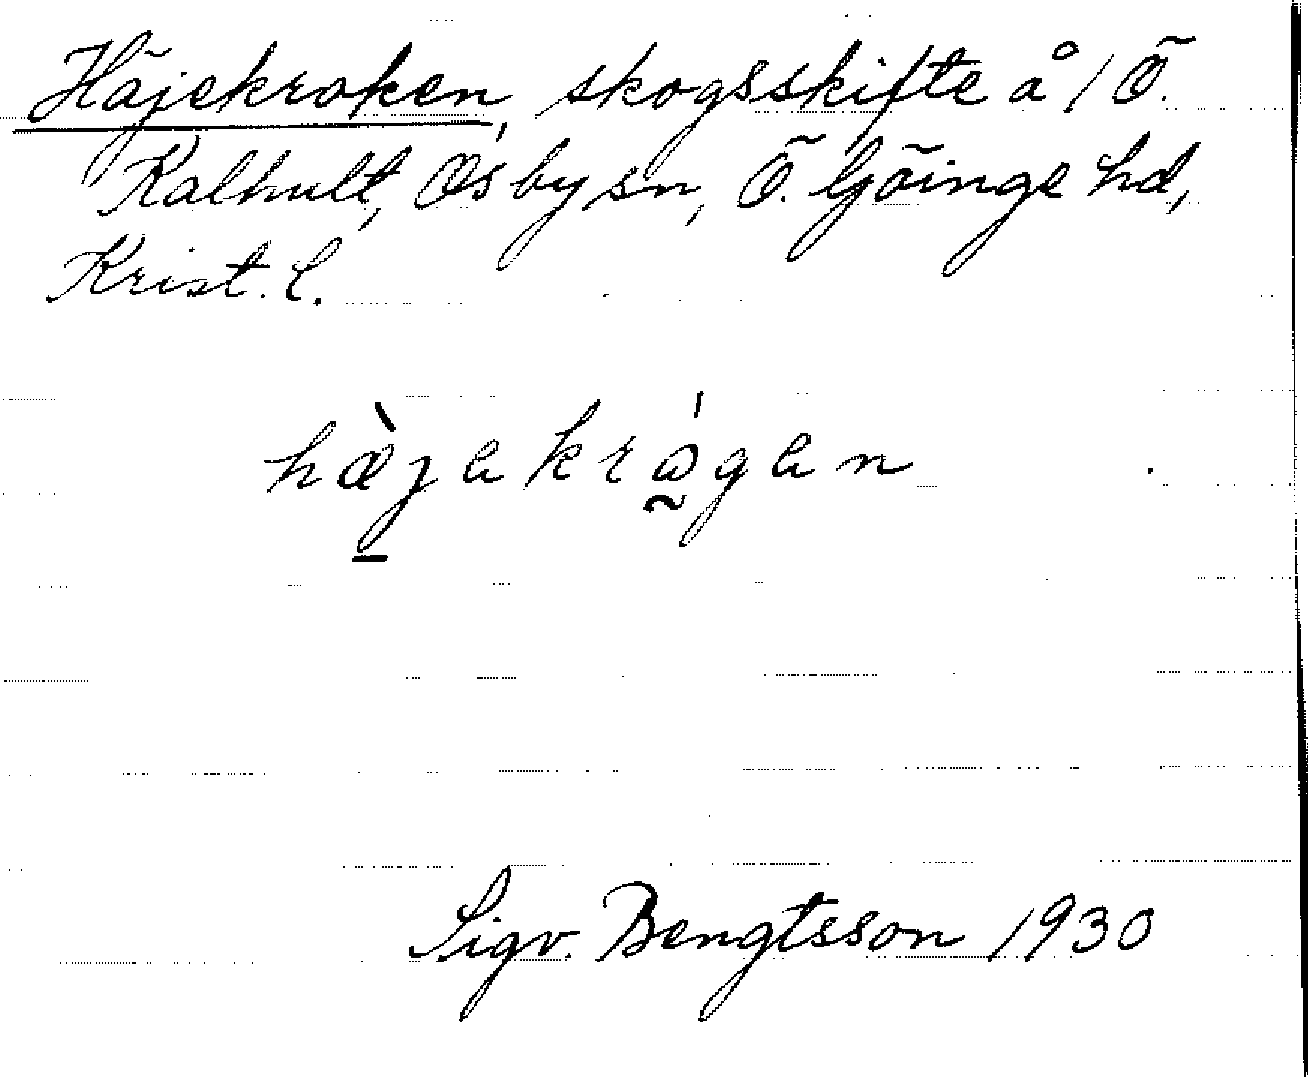 Häjekroken, skogsskifte å 1 Ö.
Kalhult, Osby sn, Ö. Göinge hd,
Krist. l.
hæ̀jekrågen
Sigv. Bengtsson 1930